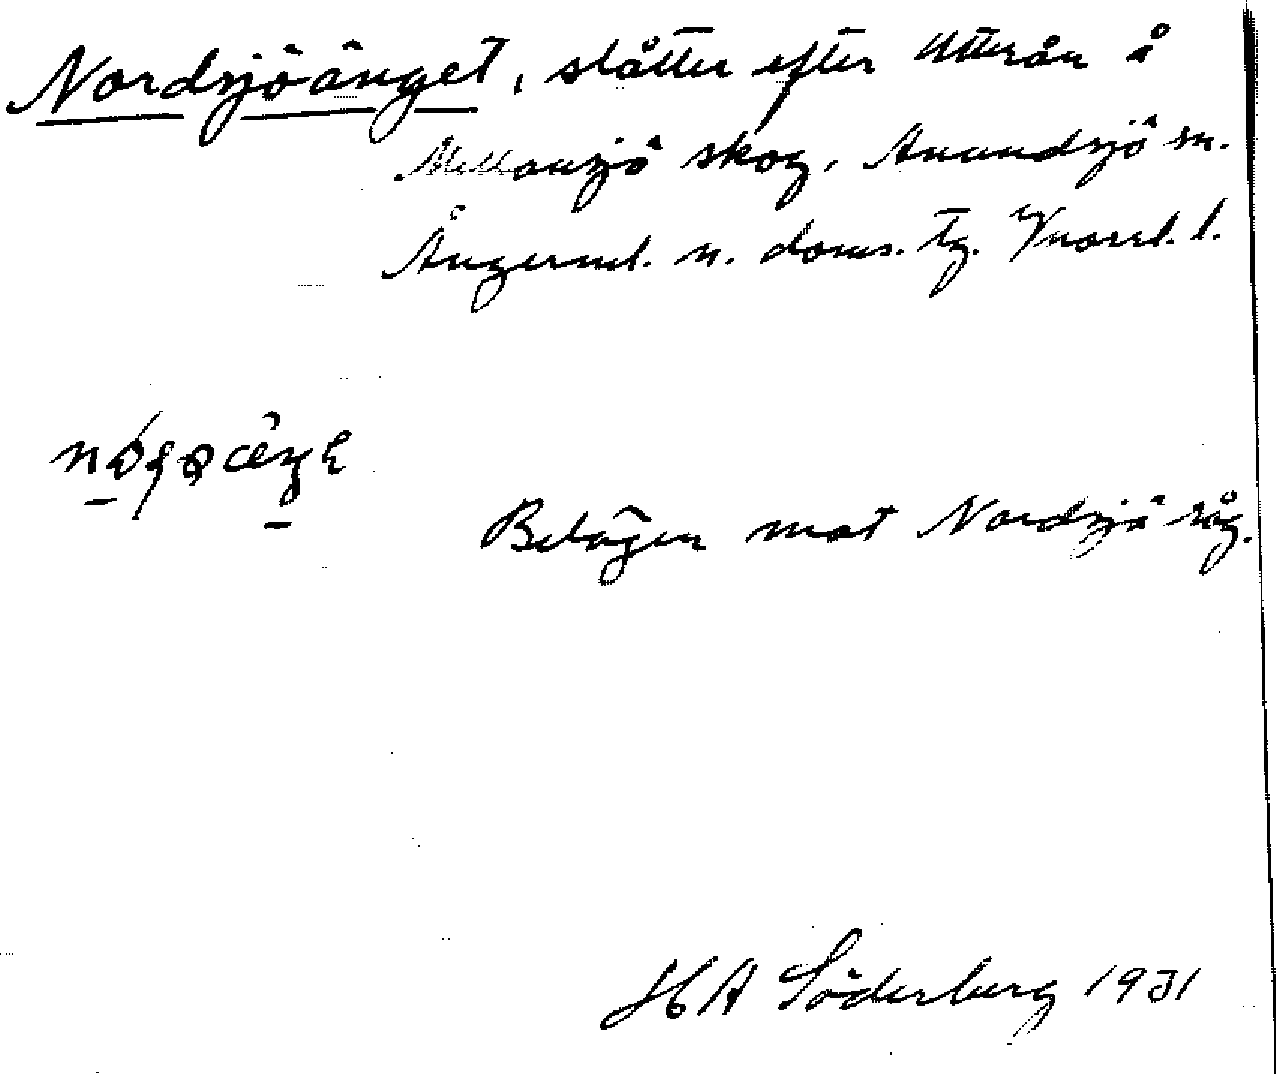 Nordsjöänget, slåtter efter Utterån å
Mellansjö skog, Anundsjö sn.
Ångerml. n. doms. tg. Vnorrl. l.
Belägen mot Nordsjö råg.
H A Söderberg 1931